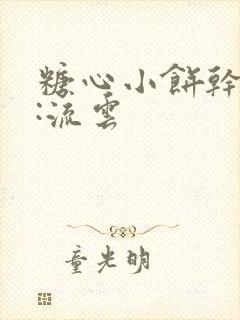 糖心小餅幹
:流雲
童光明